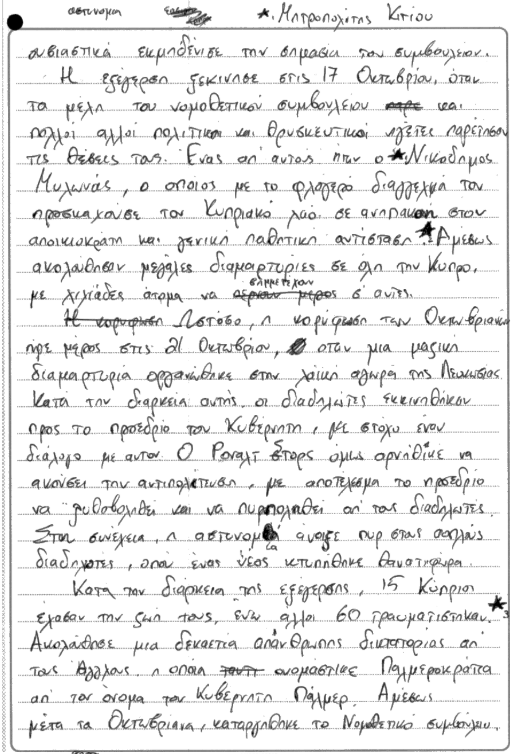 αστυνομια ★. Μητροπολίτης Κιτίου
ουσιαστικά εκμηδένισε την σημασία του συμβουλειου.
Η εξέγερση ξεκινησε στις 17 Οκτωβρίου, όταν
τα μέλη του νομοθετικού συμβουλειου και
πολλοί αλλοι πολιτικοι και θρησκευτικοι ηγέτες παρείτησαν
τις θέσεις τους. Ενας απ' αυτους ηταν ο ★ Νικοδημος
Μυλωνάς, ο οποιος με το φλογερό διαγγελμά του
προσκαλούσε τον Κυπριακό λαό σε ανυπακοη στον
αποικιοκράτη και γενικη παθητικη αντίσταση ★. Αμέσως
ακολούθησαν μεγάλες διαμαρτυρίες σε όλη την Κυπρο,
με χιλιάδες άτομα να συμμετεχουν σ' αυτες.
Η κορυφωση Ωστόσο, η κορύφωση των Οκτωβριανών
πηρε μέρος στις 21 Οκτωβρίου, όταν μια μαζικη
διαμαρτυρία οργανώθηκε στην λαϊκη αγορά της Λευκωσιας.
Κατα την διαρκεια αυτής, οι διαδηλώτες εκκινηθηκαν
προς το προεδριο του Κυβερνητη, με στόχο έναν
διάλογο με αυτον. Ο Ροναλτ Στορς όμως αρνήθηκε να
ακούσει την αντιπολιτευση, με αποτέλεσμα το προεδριο
να λιθοβοληθεί και να πυρποληθεί απ' τους διαδηλωτες.
Στην συνέχεια, η αστυνομια ανοιξε πυρ στους αοπλους
διαδηλωτες, οπου ένας νέος κτυπήθηκε θανατηφορα.
Κατα την διαρκεια της εξέγερσης, 15 Κυπριοι
έχασαν την ζωη τους, ενω αλλοι 60 τραυματιστηκαν. ★
Ακολούθησε μια δεκαετια απάνθρωπης δικτατοριας απ'
τους Αγγλους, η οποια ονομαστικε Παλμεροκράτια
απ' το όνομα του Κυβερνητη Πάλμερ. Αμέσως
μετα τα Οκτωβριανα, καταργήθηκε το Νομοθετικο συμβουλιο.